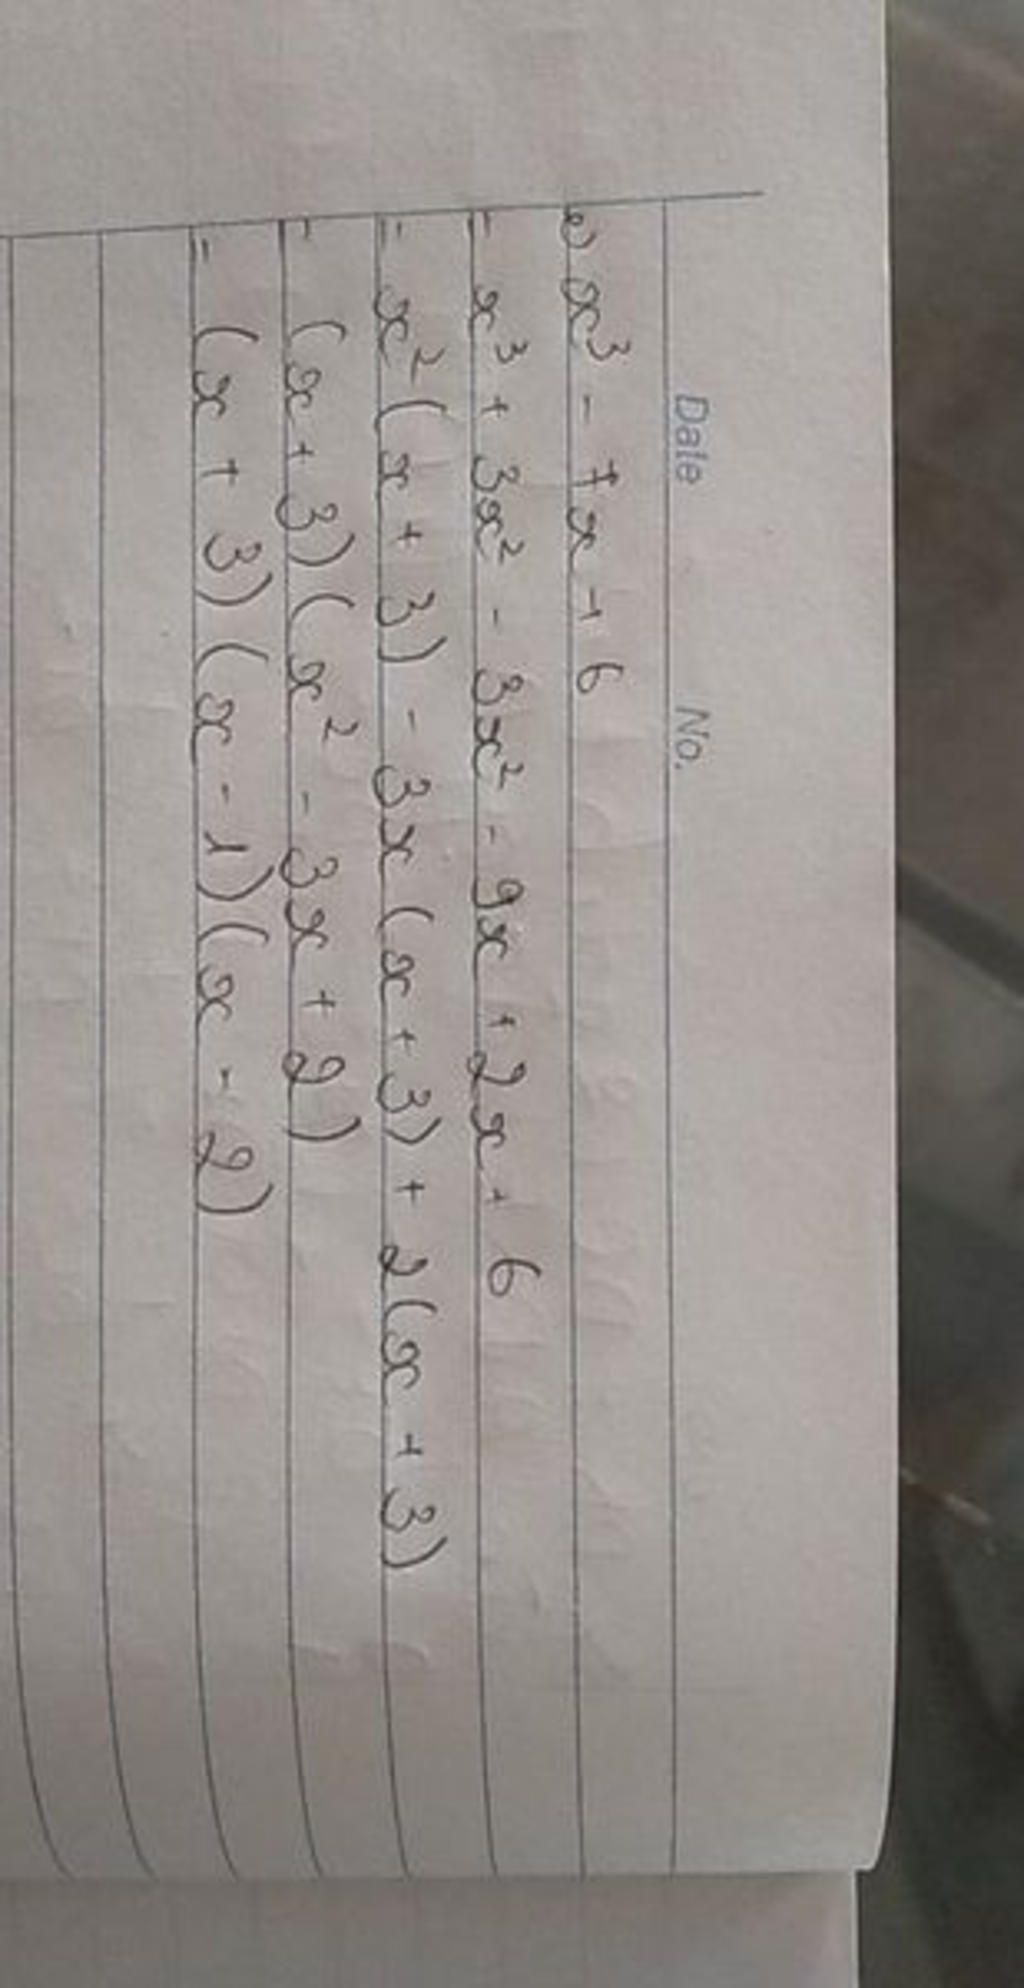 Date No.
e) x³ - 7x + 6
= x³ + 3x² - 3x² - 9x + 2x + 6
= x²(x + 3) - 3x(x + 3) + 2(x + 3)
= (x + 3)(x² - 3x + 2)
= (x + 3)(x - 1)(x - 2)